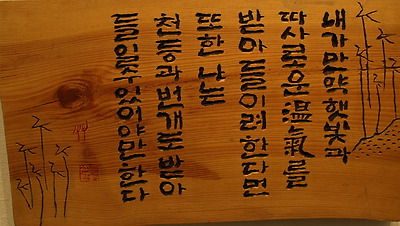 내가만약햇빛과
따사로운溫氣를
받아들이려한다면
또한나는
천둥과번개도받아
들일수있어야만한다